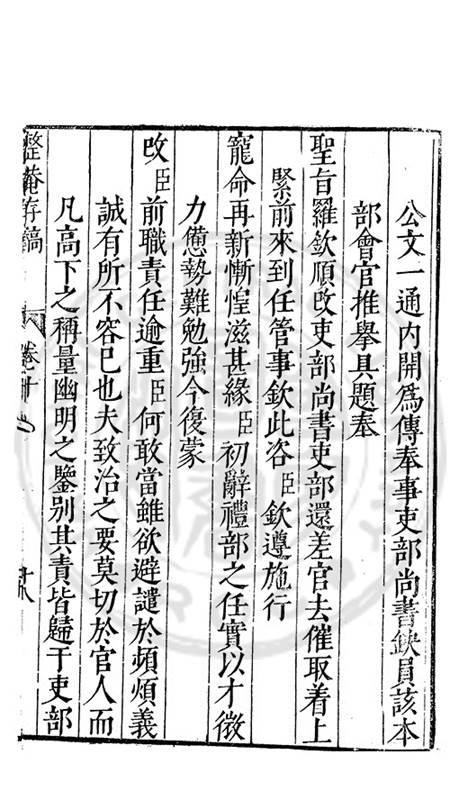 公文一通内開爲傳奉事吏部尚書缺員該本
部會官推舉具題奉
聖旨羅欽順改吏部尚書吏部還差官去催取着上
緊前來到任管事欽此咨臣欽遵施行
寵命再新慚惶滋甚緣臣初辭禮部之任實以才微
力憊勢難勉強今復蒙
改臣前職責任逾重臣何敢當雖欲避譴於頻煩義
誠有所不容已也夫致治之要莫切於官人而
凡高下之稱量幽明之鑒别其責皆歸于吏部
整菴存稿 卷十 十八